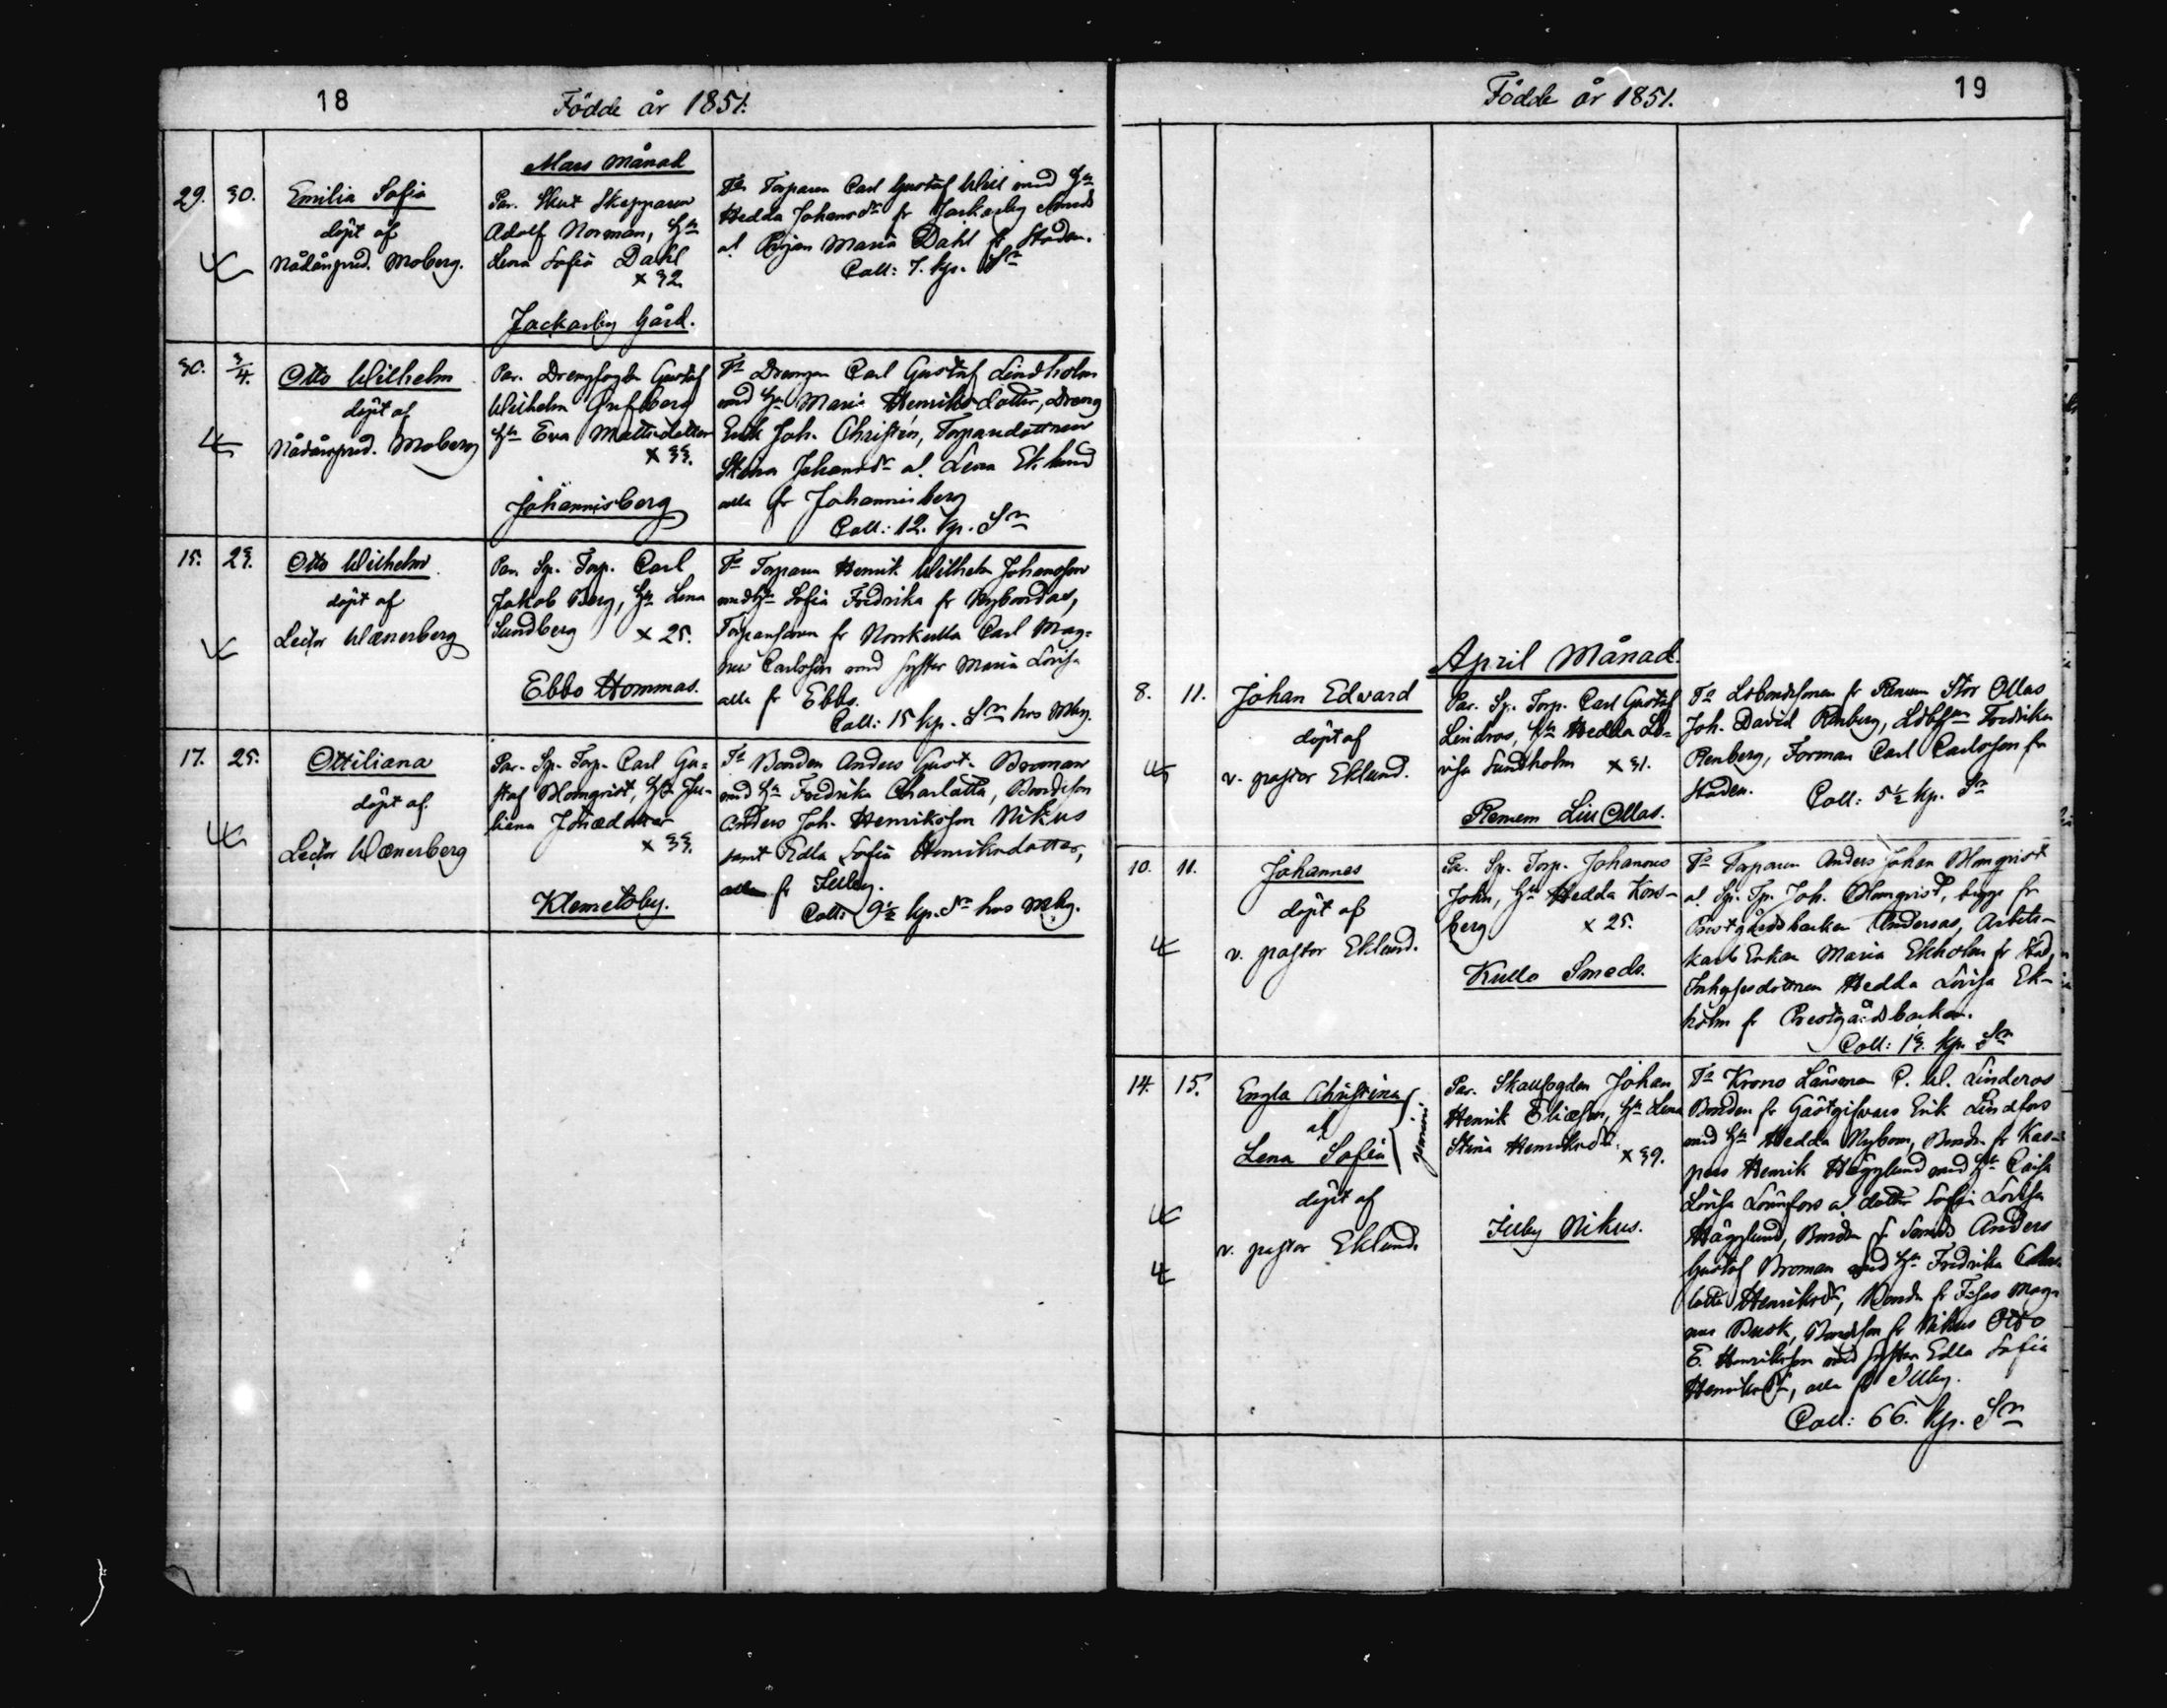 18
Födde år 1851.
Mars Månad
29. 30.
Emilia Sofia
döpt af
Nådårspred. Moberg.
Par. Skut Skepparen
Adolf Norman, Hu
Lena Sofia Dahl
x 32.
Jackarby Gård.
Torparen Carl Gustaf med Hu
Hedda Johansdr fr Jackarby
o! Pigan Maria Dahl fr Staden.
Coll: 7. kp. Sr
30. 3/4.
Otto Wilhelm
döpt af
Nådårspred. Moberg
Par. Drengfogden Gustaf
Wilhelm
Hu Eva Mattsdotter
x 33.
Johannisberg
Fa Drengen Carl Gustaf Lindholm
med Hu Maria Henriksdotter, Dreng
Erik Joh. Christén, Torparedottren
Stina Johansdr o! Lena Eklund
alla fr Johannisberg
Coll: 12. kp. Sr
15. 23.
Otto Wilhelm
döpt af
Lector Wænerberg
Par. Sp. Torp. Carl
Jakob Berg, Hu Lena
Sundberg x 25.
Ebbo Hommas.
Fa Torparen Henrik Wilhelm Johansson
med Hu Sofia Fredrika fr Nybondas,
Torparesonen fr Norrkulla Carl Mag=
nus Carlsson med syster Maria Lovisa
alla fr Ebbo.
Coll: 15 kp. Sr hos Mbg.
17. 25.
Ottiliana
döpt af
Lector Wænerberg
Par. Sp. Torp. Carl Gu=
staf Blomqvist, Hu Ju-
liana Johædotter
x 33.
Klemetsby.
Fa Bonden Anders Gust. Broman
med Hu Fredrika Charlotta, Bondeson
Anders Joh. Henriksson Nikus
samt Edla Sofia Henriksdotter,
alla fr Illby.
Coll: 9½ kp. Sr hos Mbg.
19
Födde år 1851.
April Månad.
8. 11.
Johan Edward
döpt af
v. pastor Eklund.
Par. Sp. Torp. Carl Gustaf
Lindros, Hu Hedda Lo=
visa Sundholm x 31.
Renem Lill Ollas.
Fa fr Renum Stor Ollas
Joh. David Renberg, Fredrika
Renberg, Forman Carl Carlsson fr
Staden.
Coll: 5½ kp. Sr
10. 11.
Johannes
döpt af
v. pastor Eklund.
Par. Sp. Torp. Johannes
John, Hu Hedda Fors-
berg x 25.
Kullo Smeds.
Fa Torparen Anders Johan Blomqvist
o! Sp. Tp. Joh. Blomqvist, bägge fr
Prostgårdsbacken Andersas, Arbets-
karls Enkan Maria Ekholm fr Stad,
Inhysesdottren Hedda Lovisa Ek-
holm fr Prestgårdsbacken.
Coll: 13. kp. Sr
14. 15.
Engla Christina
o!
Lena Sofia
döpt af
v. pastor Eklund.
Par. Skallfogden Johan
Henrik Eliæson, Hu Lena
Stina Henriksdr.
x 39.
Illby Nikus.
Fa Krono Länsman C. W. Linderos
Bonden fr Gästgifvars Erik Lindfors
med Hu Hedda Nybom, Bonden fr Kas=
pers Henrik Hägglund med Hu Caisa
Lovisa Lönnfors o! dotter Sofia Lovisa
Hägglund, Bonden fr Smeds Anders
Gustaf Broman med Hu Fredrika Char-
lotta Henriksdr, Bonden fr Mag-
nus Busk, Bondeson fr Nikus Otto
E. Henriksson med syster Edla Sofia
Henriksdr, alla fr Illby.
Coll: 66. kp. Sr